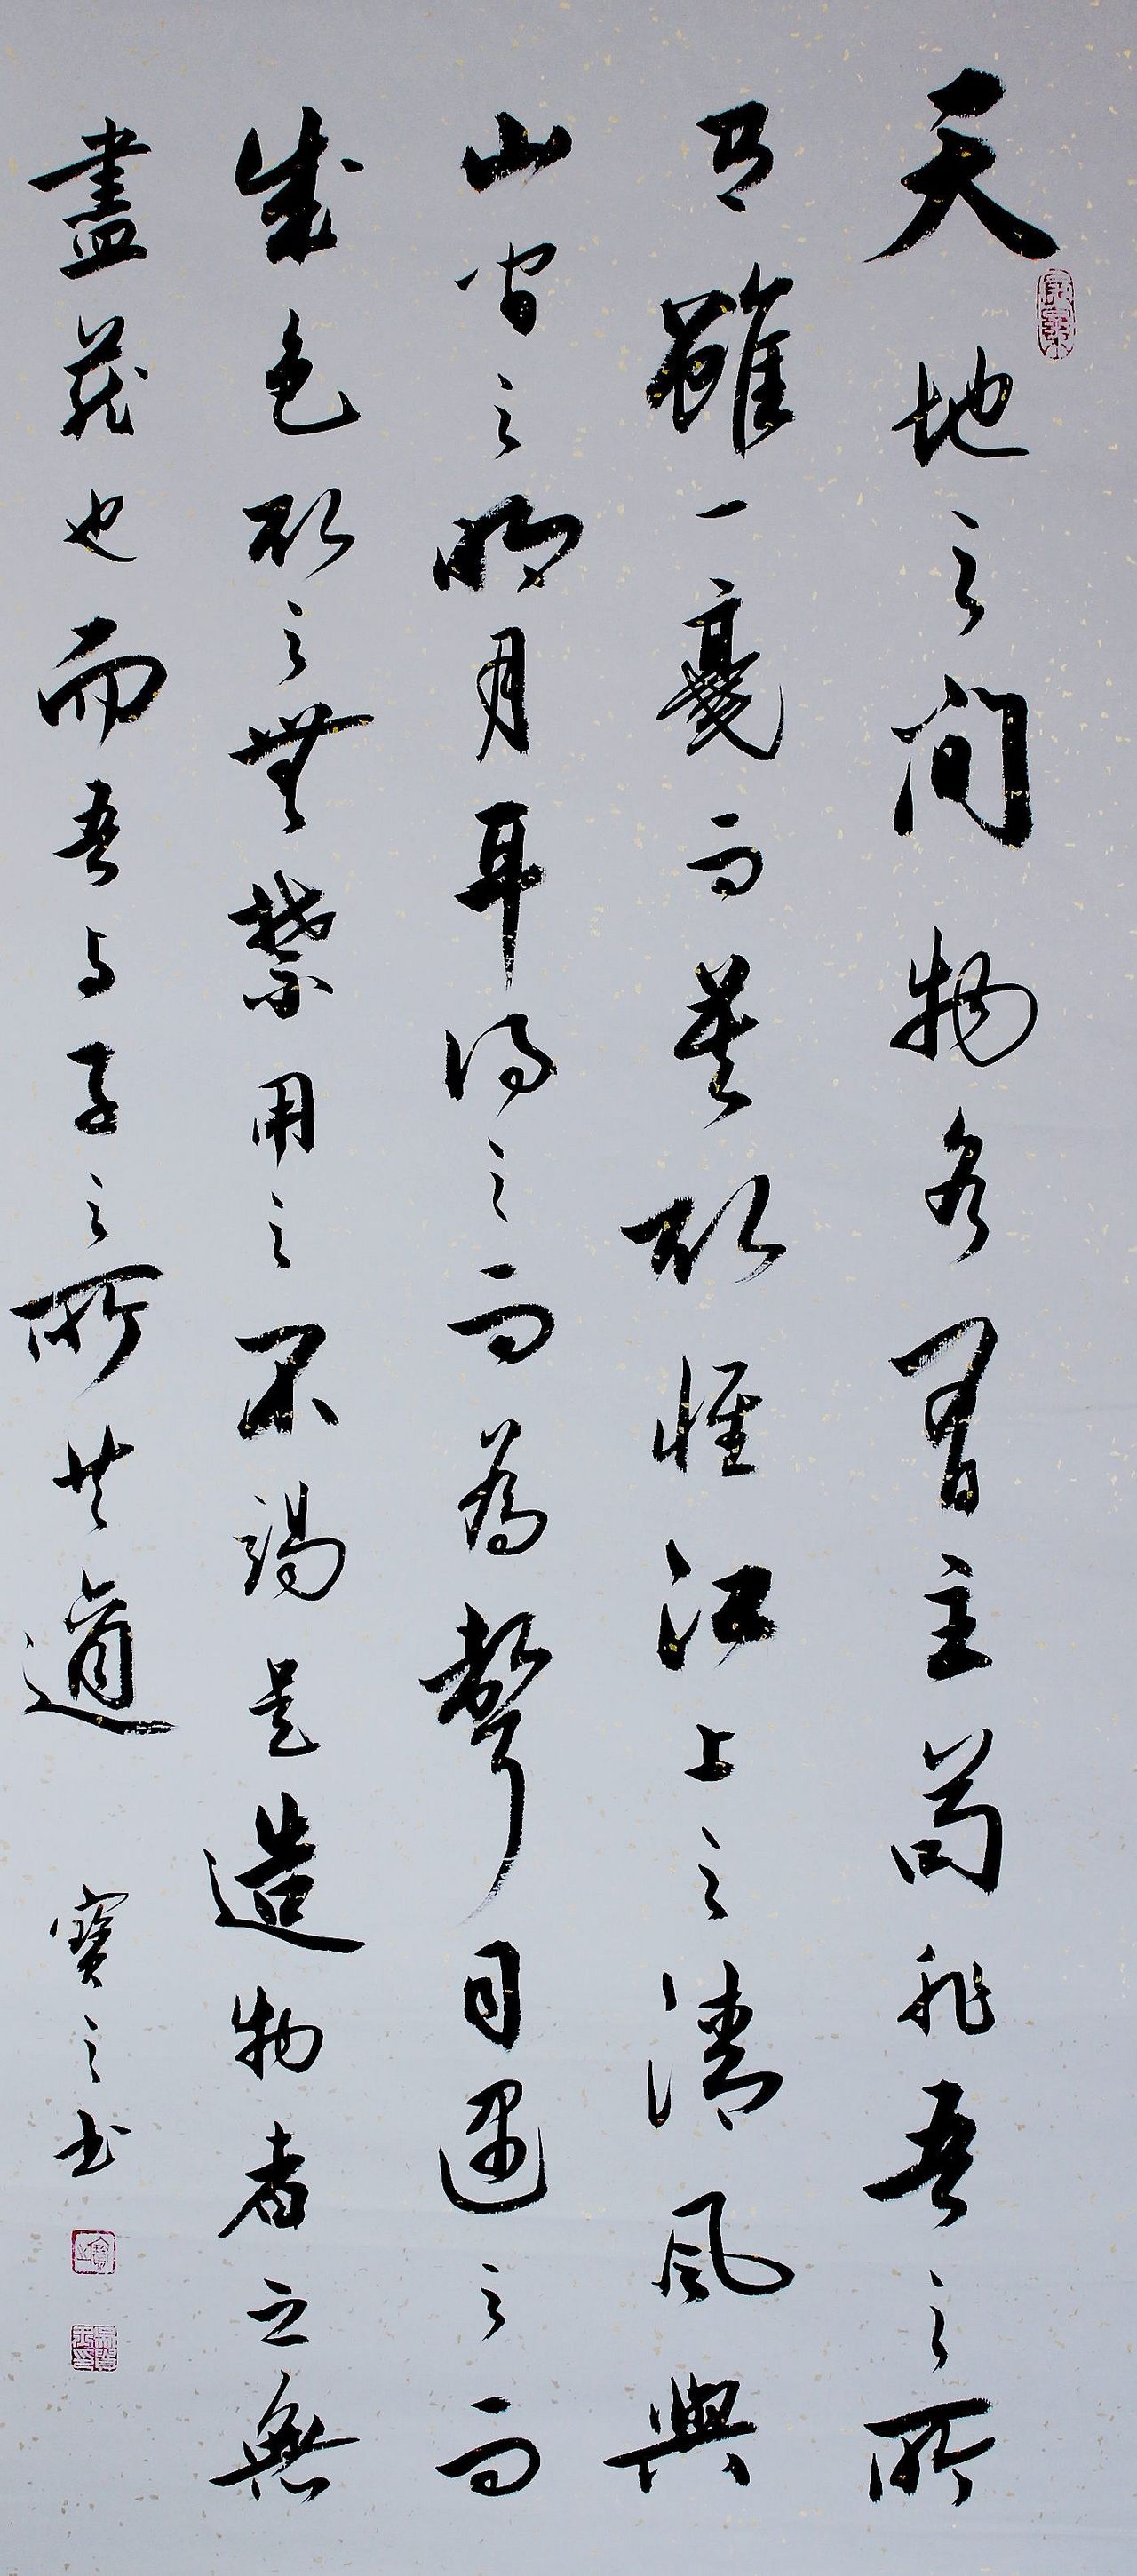 天地之间物各有主苟非吾之所
有雖一毫而莫取惟江上之清風與
山間之明月耳得之而為聲目遇之而
成色取之無禁用之不竭是造物者之無
盡藏也而吾与子之所共適 寶之书